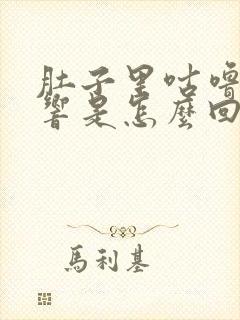 肚子里咕噜
響是怎麼回
馬利基